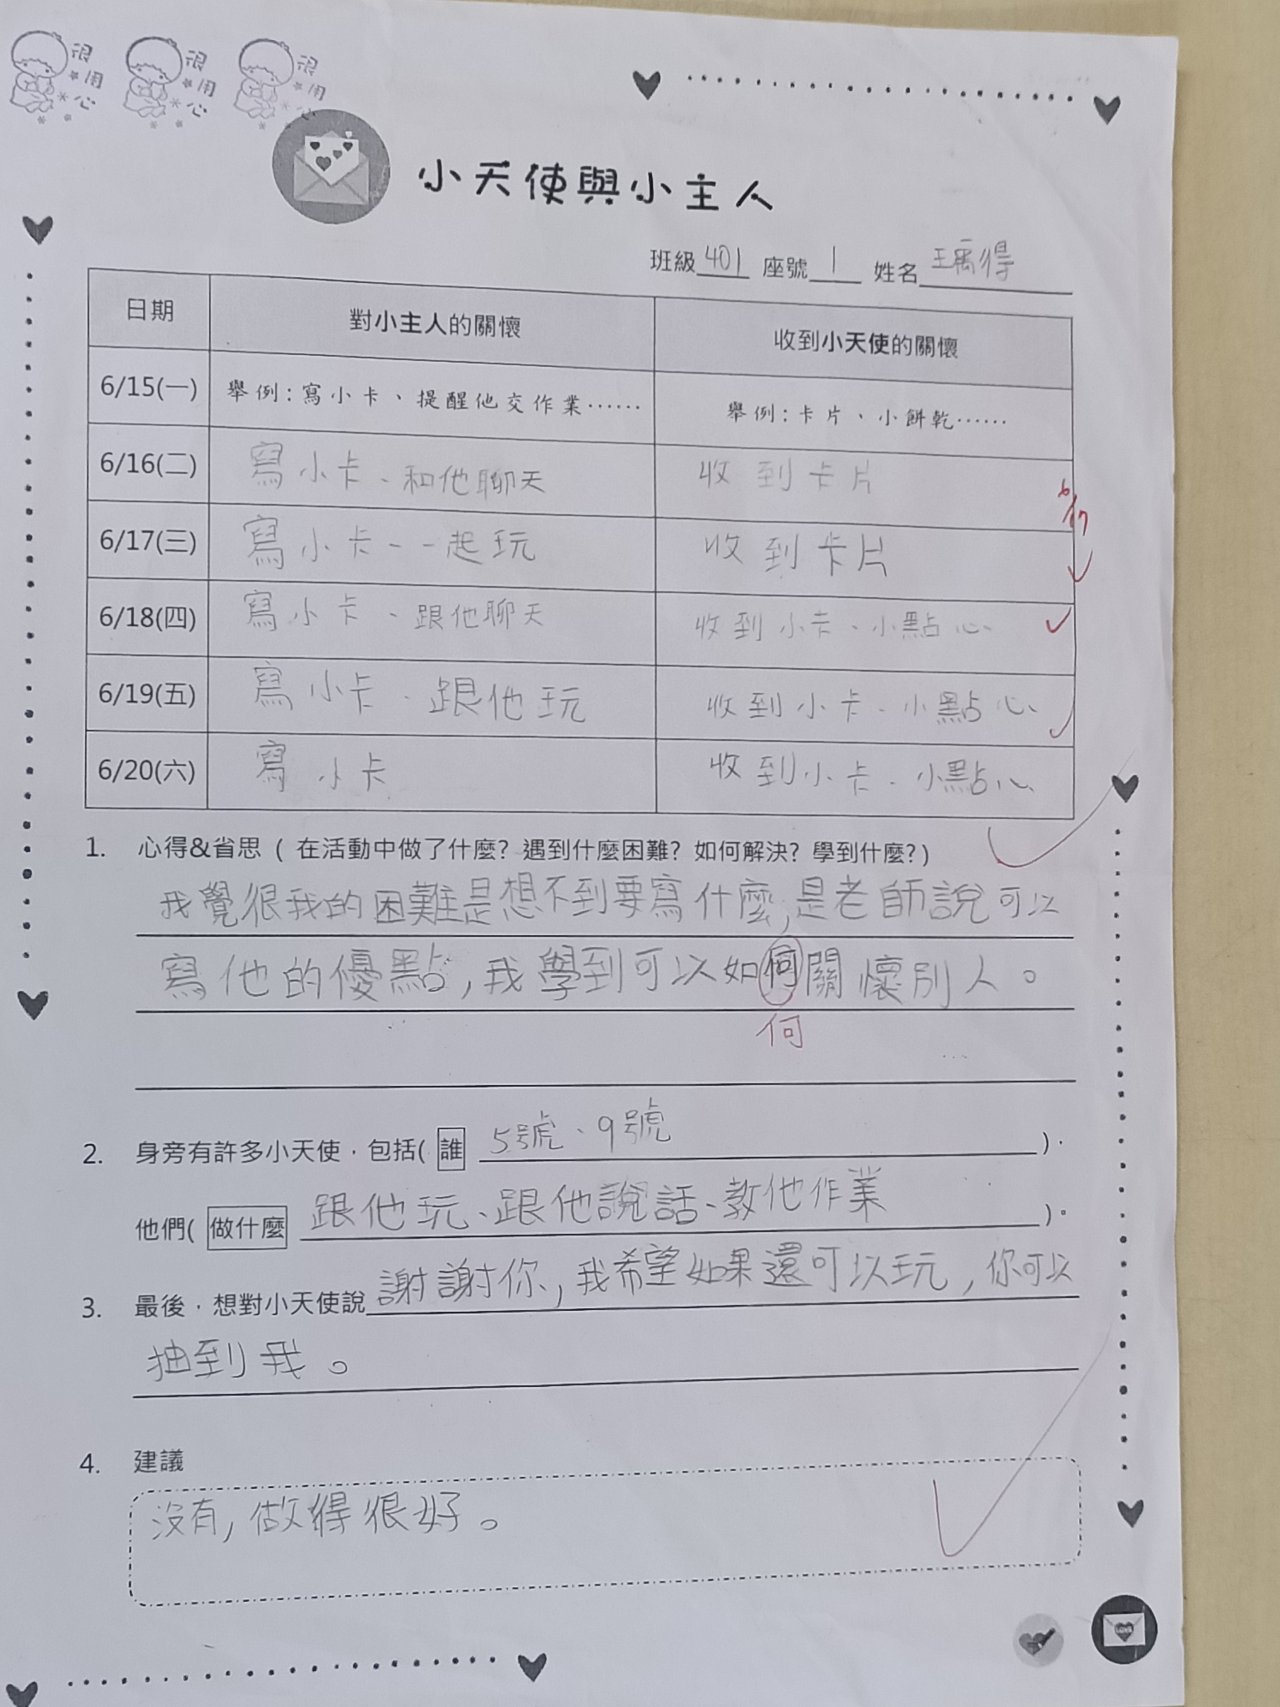 很用心 很用心 很用心
小天使與小主人
班級 401 座號 1 姓名 王禹得
日期 對小主人的關懷 收到小天使的關懷
6/15(一) 舉例:寫小卡、提醒他交作業…… 舉例:卡片、小餅乾……
6/16(二) 寫小卡、和他聊天 收到卡片
6/17
6/17(三) 寫小卡、一起玩 收到卡片
6/18(四) 寫小卡、跟他聊天 收到小卡、小點心
6/19(五) 寫小卡、跟他玩 收到小卡、小點心
6/20(六) 寫小卡 收到小卡、小點心
1. 心得&省思 ( 在活動中做了什麼? 遇到什麼困難? 如何解決? 學到什麼?)
我覺很我的困難是想不到要寫什麼,是老師說可以
寫他的優點,我學到可以如何關懷別人。
何
2. 身旁有許多小天使,包括( 誰 5號、9號 ),
他們( 做什麼 跟他玩、跟他說話、教他作業 )。
3. 最後,想對小天使說 謝謝你,我希望如果還可以玩,你可以
抽到我。
4. 建議
沒有,做得很好。
LOVE